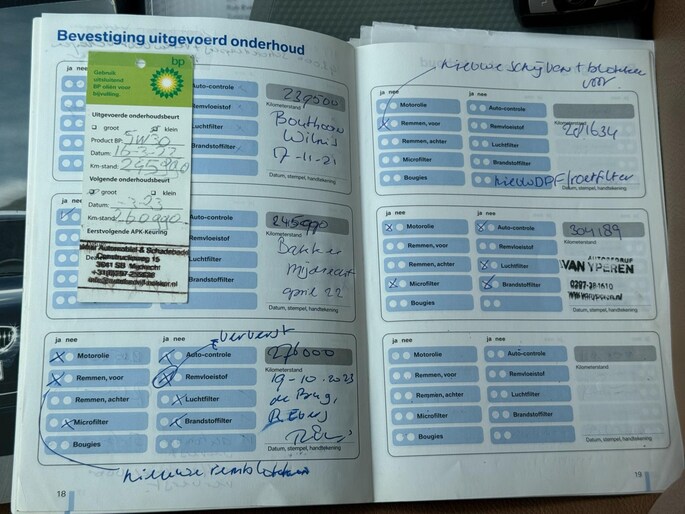 Bevestiging uitgevoerd onderhoud
bp
Gebruik
uitsluitend
BP oliën voor
bijvulling.
Uitgevoerde onderhoudsbeurt
groot klein
Product BP: 5W30
Datum:
Km-stand: 245990
Volgende onderhoudsbeurt
groot klein
Datum: -3-23
Km-stand: 260990
Eerstvolgende APK-Keuring
Constructieweg 15
3641 SB Mijdrecht
ja nee
Auto-controle
Remvloeistof
Luchtfilter
Brandstoffilter
239000
Kilometerstand
Bouthoorn
Wilnis
17-11-21
Datum, stempel, handtekening
ja nee
Auto-controle
Remvloeistof
Luchtfilter
Brandstoffilter
245990
Kilometerstand
Bakker
Mijdrecht
april 22
Datum, stempel, handtekening
ververst
ja nee ja nee
Motorolie Auto-controle 276000
Remmen, voor Remvloeistof Kilometerstand
Remmen, achter Luchtfilter 19-10-2023
Microfilter Brandstoffilter
Bougies
Datum, stempel, handtekening
nieuwe remblokken
18
nieuwe schijven + blokken
voor
ja nee ja nee
Motorolie Auto-controle
Remmen, voor Remvloeistof Kilometerstand
Remmen, achter Luchtfilter 281634
Microfilter Brandstoffilter
Bougies nieuw DPF/roetfilter
Datum, stempel, handtekening
ja nee ja nee
Motorolie Auto-controle 304189
Remmen, voor Remvloeistof Kilometerstand
Remmen, achter Luchtfilter AUTOBEDRIJF
VAN YPEREN
Microfilter Brandstoffilter 0297-261610
Bougies
Datum, stempel, handtekening
ja nee ja nee
Motorolie Auto-controle
Remmen, voor Remvloeistof Kilometerstand
Remmen, achter Luchtfilter
Microfilter Brandstoffilter
Bougies
Datum, stempel, handtekening
19